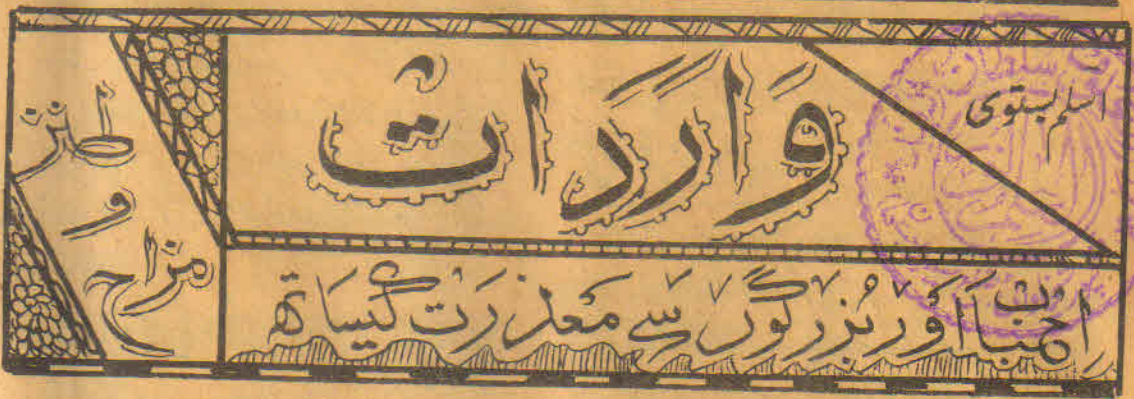 اسلم بستوی
واردات
احباب اور بزرگوں سے معذرت کیساتھ
طنز
و
مزاح